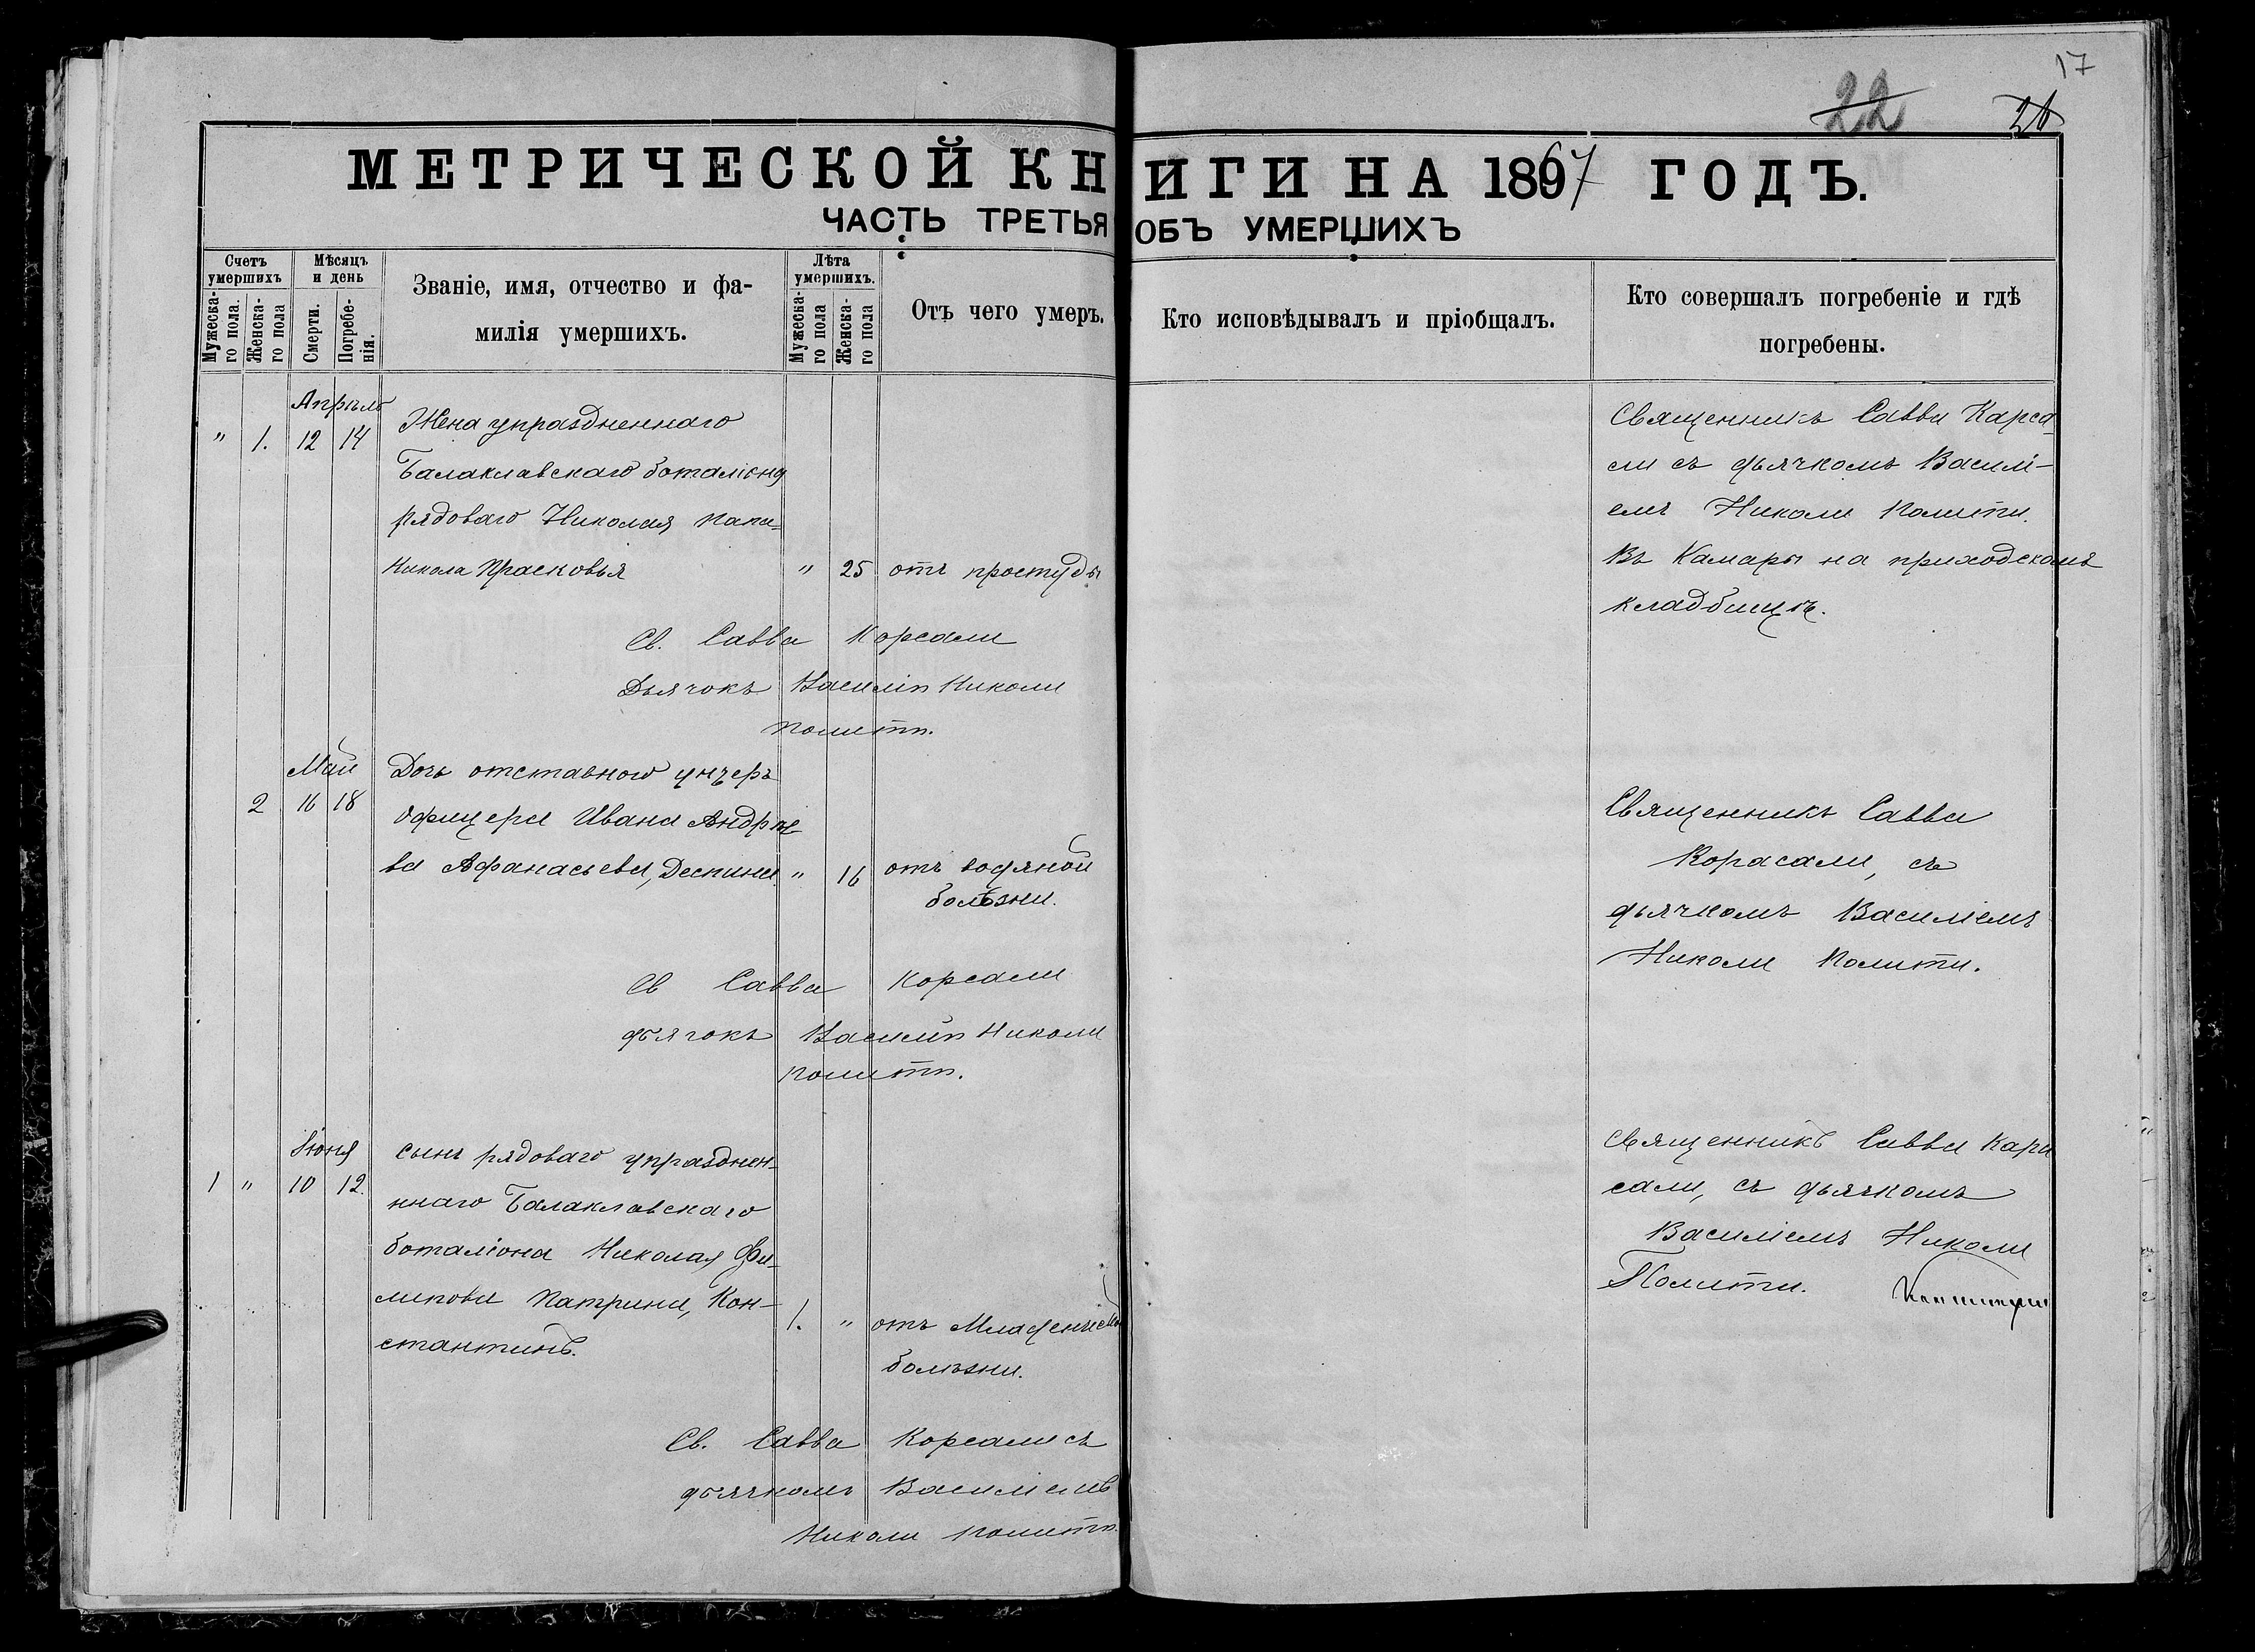 17
22
МЕТРИЧЕСКОЙ КНИГИ НА 1867 ГОДЪ.
ЧАСТЬ ТРЕТЬЯ ОБЪ УМЕРШИХЪ
Счетъ умершихъ
Мужеска-го пола.
Женска-го пола
Мѣсяцъ и день
Смерти.
Погребе-нія.
Званіе, имя, отчество и фа-
милія умершихъ.
Лѣта умершихъ.
Мужеска-го пола
Женска-го пола
Отъ чего умеръ.
Кто исповѣдывалъ и пріобщалъ.
Кто совершалъ погребеніе и гдѣ
погребены.
Апрѣль
" 1. 12 14
Жена упраздненнаго
Балаклавскаго баталіона
рядоваго Николая Папа-
Никола Прасковья " 25 отъ простуды
Св. Савва Корсали
Дьячокъ Василій Николи
Полити.
Священникъ Савва Карса-
ли съ дьячкомъ Василі-
емъ Николи Полити.
Въ Камары на приходскомъ
кладбищѣ.
Май
2 16 18
Дочь отставного унтеръ
офицера Ивана Андрѣе-
ва Афанасьева, Деспина " 16 отъ водяной
болѣзни.
Св Савва Корсали
дьячокъ Василій Николи
Полити.
Священникъ Савва
Корасали, съ
дьячкомъ Василіемъ
Николи Полити.
Іюня
1 " 10 12.
Сынъ рядоваго упразднен-
ннаго Балаклавскаго
боталіона Николая Фи-
липова Патрина, Кон-
стантинъ. 1. " отъ Младенческой
болѣзни.
Св. Савва Корсали съ
дьячкомъ Василіемъ
Николи Полити.
Священникъ Савва Кара
сали, съ дьячкомъ
Василіемъ Николи
Полити.